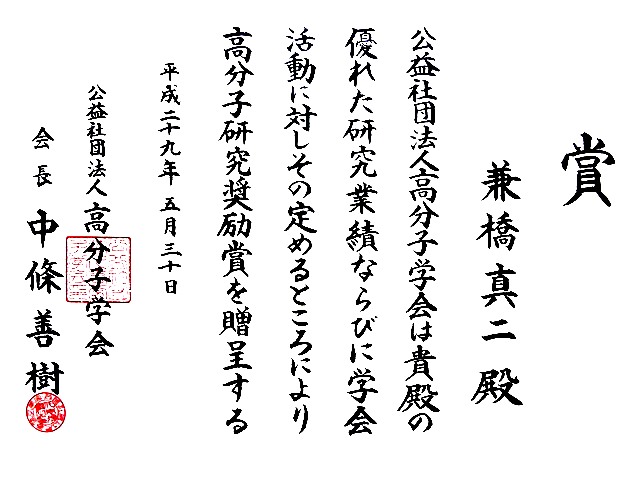 賞
兼橋真二殿
公益社団法人高分子学会は貴殿の
優れた研究業績ならびに学会
活動に対しその定めるところにより
高分子研究奨励賞を贈呈する
平成二十九年 五月三十日
公益社団法人高分子学会
会長 中條善樹